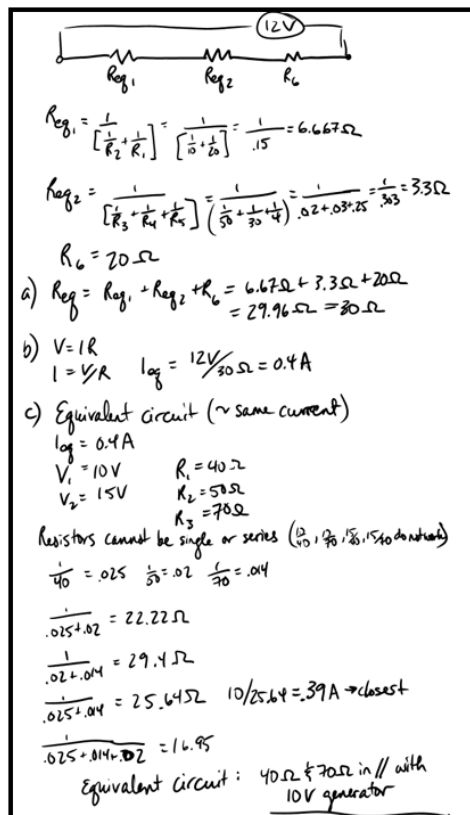 12V
Req₁ Req₂ R₆
Req₁ = 1/[1/R₂ + 1/R₁] = 1/[1/10 + 1/20] = 1/.15 = 6.667Ω
Req₂ = 1/[1/R₃ + 1/R₄ + 1/R₅] = 1/(1/50 + 1/30 + 1/4) = 1/.02+.03+.25 = 1/.303 = 3.3Ω
R₆ = 20Ω
a) Req = Req₁ + Req₂ + R₆ = 6.67Ω + 3.3Ω + 20Ω
= 29.96Ω = 30Ω
b) V = IR
I = V/R Ieq = 12V/30Ω = 0.4A
c) Equivalent circuit (~ same current)
Ieq = 0.4A
V₁ = 10V R₁ = 40Ω
V₂ = 15V R₂ = 50Ω
R₃ = 70Ω
Resistors cannot be single or series (do not work)
1/40 = .025 1/50 = .02 1/70 = .014
1/.025+.02 = 22.22Ω
1/.02+.014 = 29.4Ω
1/.025+.014 = 25.64Ω 10/25.64 = .39A → closest
1/.025+.014+.02 = 16.95
Equivalent circuit: 40Ω & 70Ω in // with
10V generator